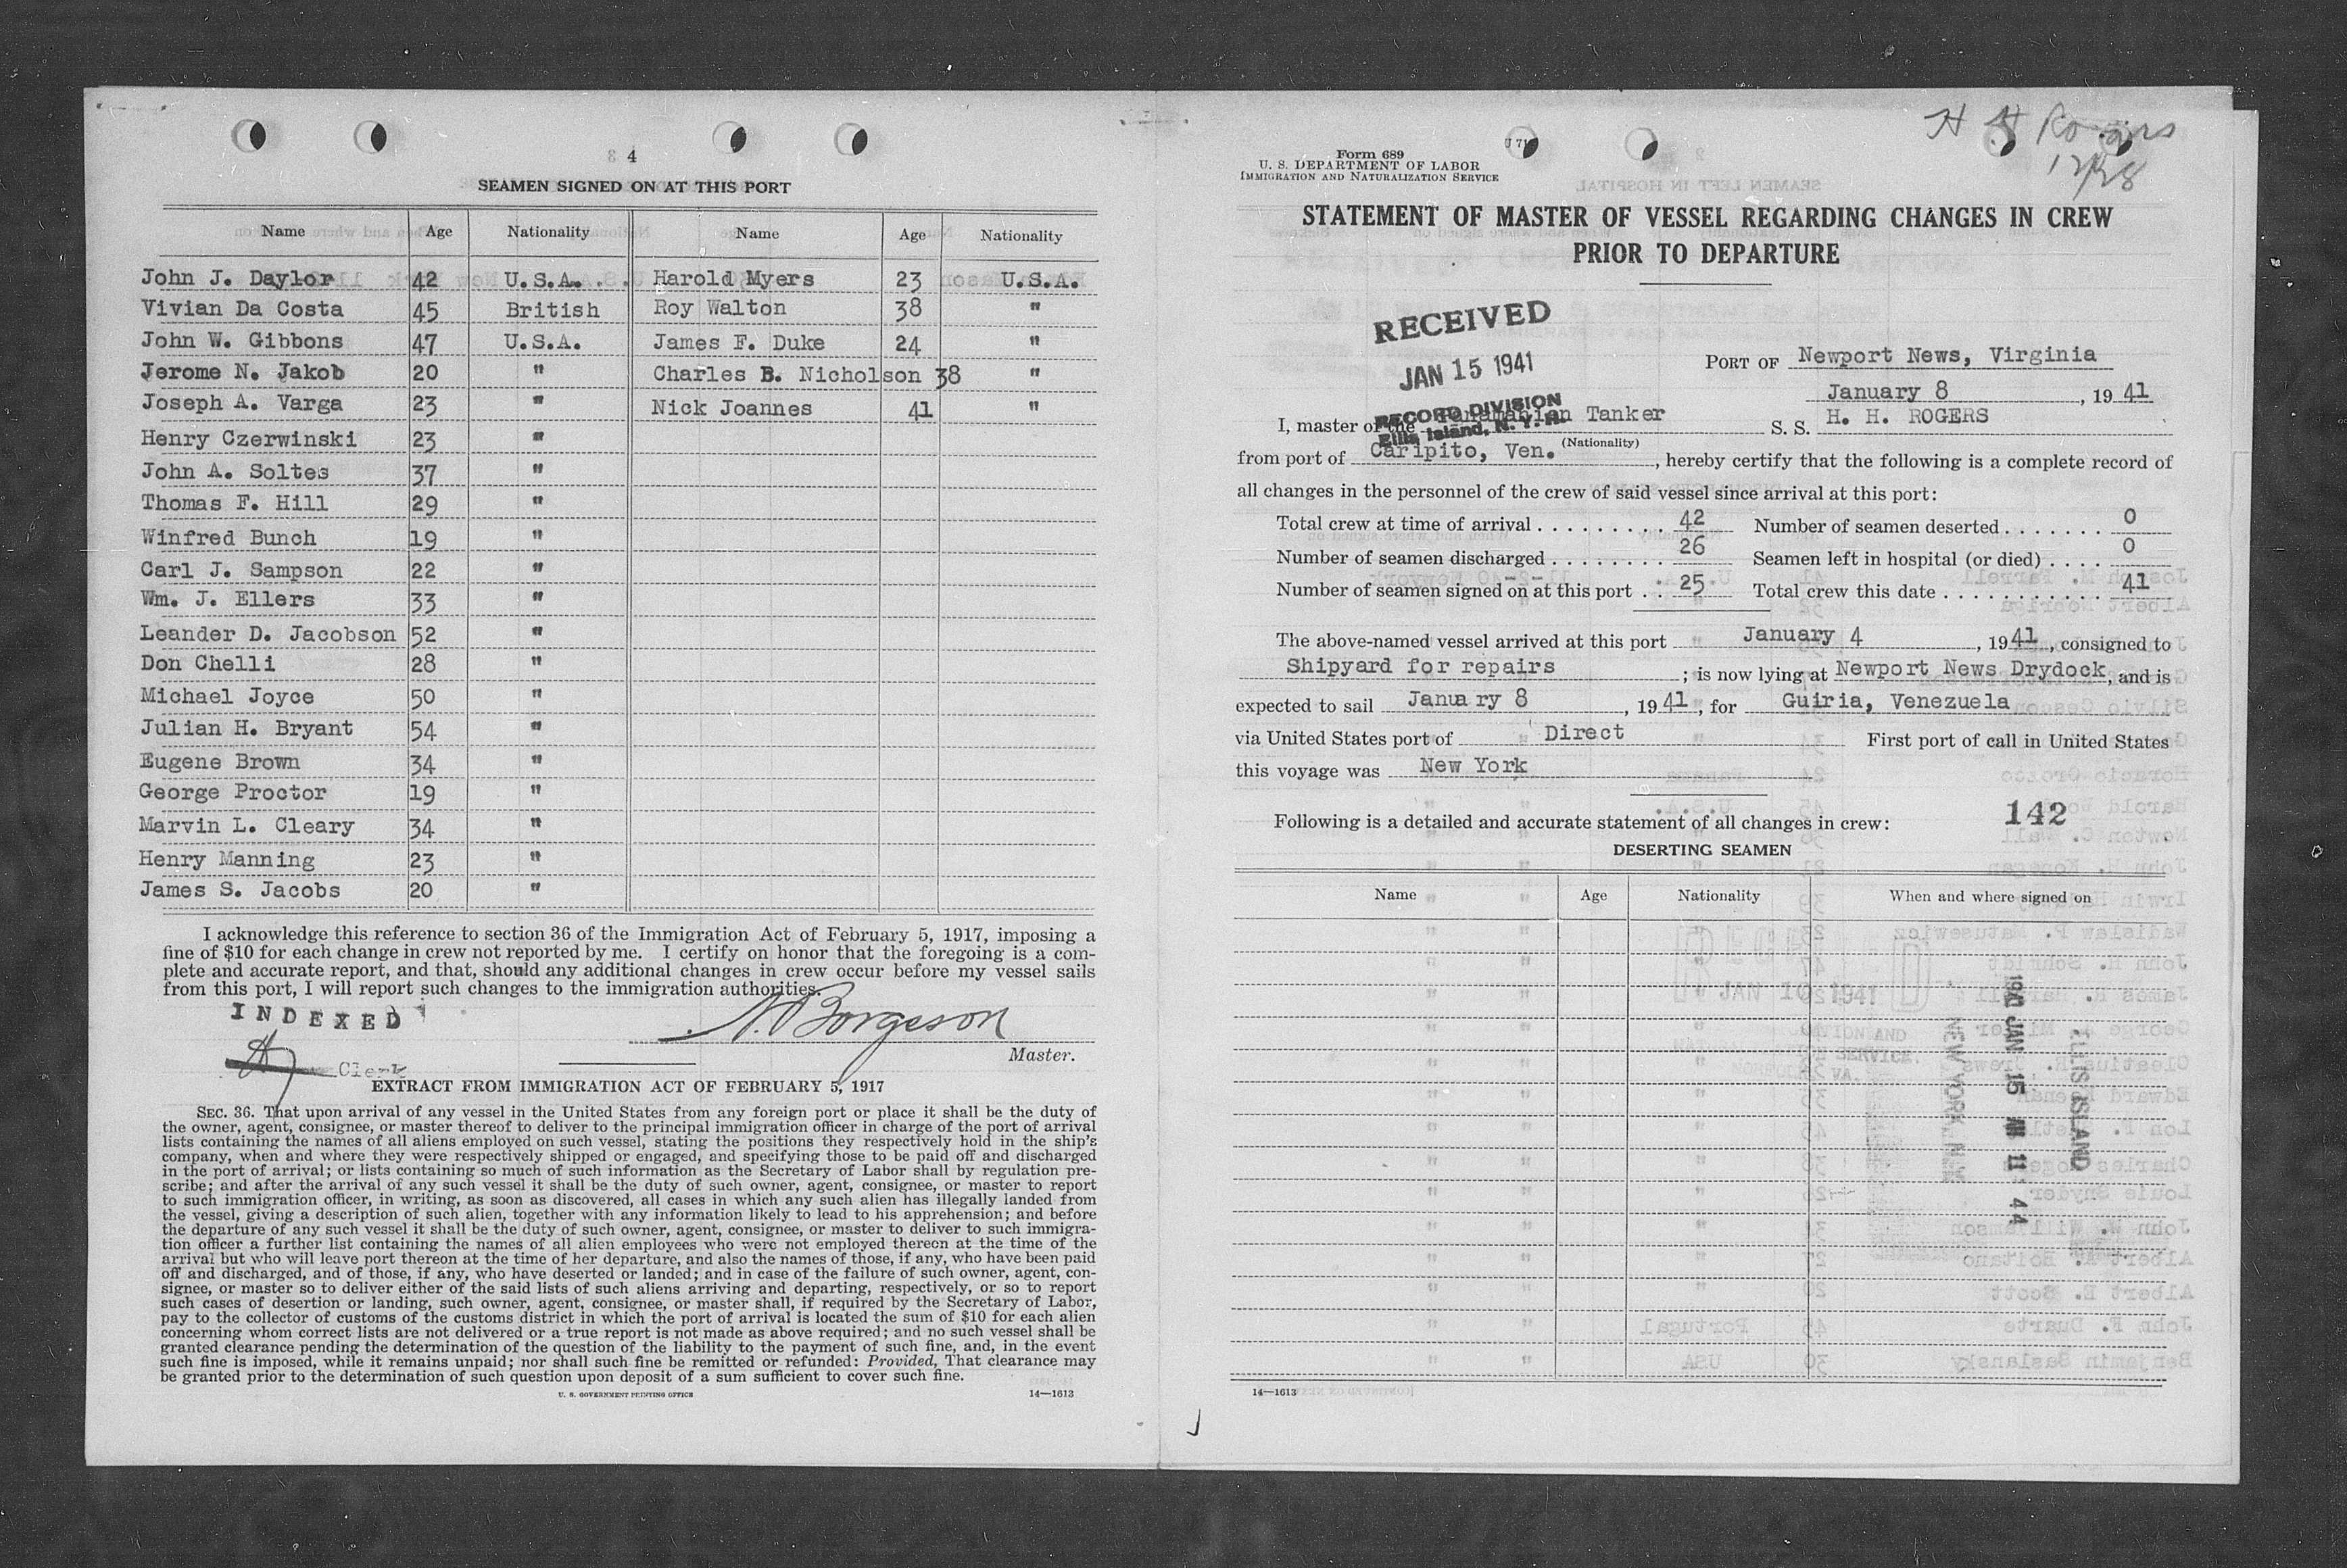 4
SEAMEN SIGNED ON AT THIS PORT
Name Age Nationality Name Age Nationality
John J. Daylor 42 U.S.A. Harold Myers 23 U.S.A.
Vivian Da Costa 45 British Roy Walton 38 "
John W. Gibbons 47 U.S.A. James F. Duke 24 "
Jerome N. Jakob 20 " Charles B. Nicholson 38 "
Joseph A. Varga 23 " Nick Joannes 41 "
Henry Czerwinski 23 "
John A. Soltes 37 "
Thomas F. Hill 29 "
Winfred Bunch 19 "
Carl J. Sampson 22 "
Wm. J. Ellers 33 "
Leander D. Jacobson 52 "
Don Chelli 28 "
Michael Joyce 50 "
Julian H. Bryant 54 "
Eugene Brown 34 "
George Proctor 19 "
Marvin L. Cleary 34 "
Henry Manning 23 "
James S. Jacobs 20 "
I acknowledge this reference to section 36 of the Immigration Act of February 5, 1917, imposing a
fine of $10 for each change in crew not reported by me. I certify on honor that the foregoing is a com-
plete and accurate report, and that, should any additional changes in crew occur before my vessel sails
from this port, I will report such changes to the immigration authorities.
INDEXED
Borgeson
Master.
Clerk
EXTRACT FROM IMMIGRATION ACT OF FEBRUARY 5, 1917
SEC. 36. That upon arrival of any vessel in the United States from any foreign port or place it shall be the duty of
the owner, agent, consignee, or master thereof to deliver to the principal immigration officer in charge of the port of arrival
lists containing the names of all aliens employed on such vessel, stating the positions they respectively hold in the ship's
company, when and where they were respectively shipped or engaged, and specifying those to be paid off and discharged
in the port of arrival; or lists containing so much of such information as the Secretary of Labor shall by regulation pre-
scribe; and after the arrival of any such vessel it shall be the duty of such owner, agent, consignee, or master to report
to such immigration officer, in writing, as soon as discovered, all cases in which any such alien has illegally landed from
the vessel, giving a description of such alien, together with any information likely to lead to his apprehension; and before
the departure of any such vessel it shall be the duty of such owner, agent, consignee, or master to deliver to such immigra-
tion officer a further list containing the names of all alien employees who were not employed thereon at the time of the
arrival but who will leave port thereon at the time of her departure, and also the names of those, if any, who have been paid
off and discharged, and of those, if any, who have deserted or landed; and in case of the failure of such owner, agent, con-
signee, or master so to deliver either of the said lists of such aliens arriving and departing, respectively, or so to report
such cases of desertion or landing, such owner, agent, consignee, or master shall, if required by the Secretary of Labor,
pay to the collector of customs of the customs district in which the port of arrival is located the sum of $10 for each alien
concerning whom correct lists are not delivered or a true report is not made as above required; and no such vessel shall be
granted clearance pending the determination of the question of the liability to the payment of such fine, and, in the event
such fine is imposed, while it remains unpaid; nor shall such fine be remitted or refunded: Provided, That clearance may
be granted prior to the determination of such question upon deposit of a sum sufficient to cover such fine.
U. S. GOVERNMENT PRINTING OFFICE 14—1613
H H Rogers
12/28
Form 689
U. S. DEPARTMENT OF LABOR
IMMIGRATION AND NATURALIZATION SERVICE
STATEMENT OF MASTER OF VESSEL REGARDING CHANGES IN CREW
PRIOR TO DEPARTURE
RECEIVED
JAN 15 1941
RECORD DIVISION
Ellis Island, N. Y. H.
PORT OF Newport News, Virginia
January 8, 1941
I, master of the Panamanian Tanker S. S. H. H. ROGERS
(Nationality)
from port of Caripito, Ven., hereby certify that the following is a complete record of
all changes in the personnel of the crew of said vessel since arrival at this port:
Total crew at time of arrival 42 Number of seamen deserted 0
Number of seamen discharged 26 Seamen left in hospital (or died) 0
Number of seamen signed on at this port 25 Total crew this date 41
The above-named vessel arrived at this port January 4, 1941, consigned to
Shipyard for repairs; is now lying at Newport News Drydock, and is
expected to sail January 8, 1941, for Guiria, Venezuela
via United States port of Direct First port of call in United States
this voyage was New York
142
Following is a detailed and accurate statement of all changes in crew:
DESERTING SEAMEN
Name Age Nationality When and where signed on
1941 JAN 15 AM 11 44
ELLIS ISLAND
NEW YORK, N.Y.
14—1613